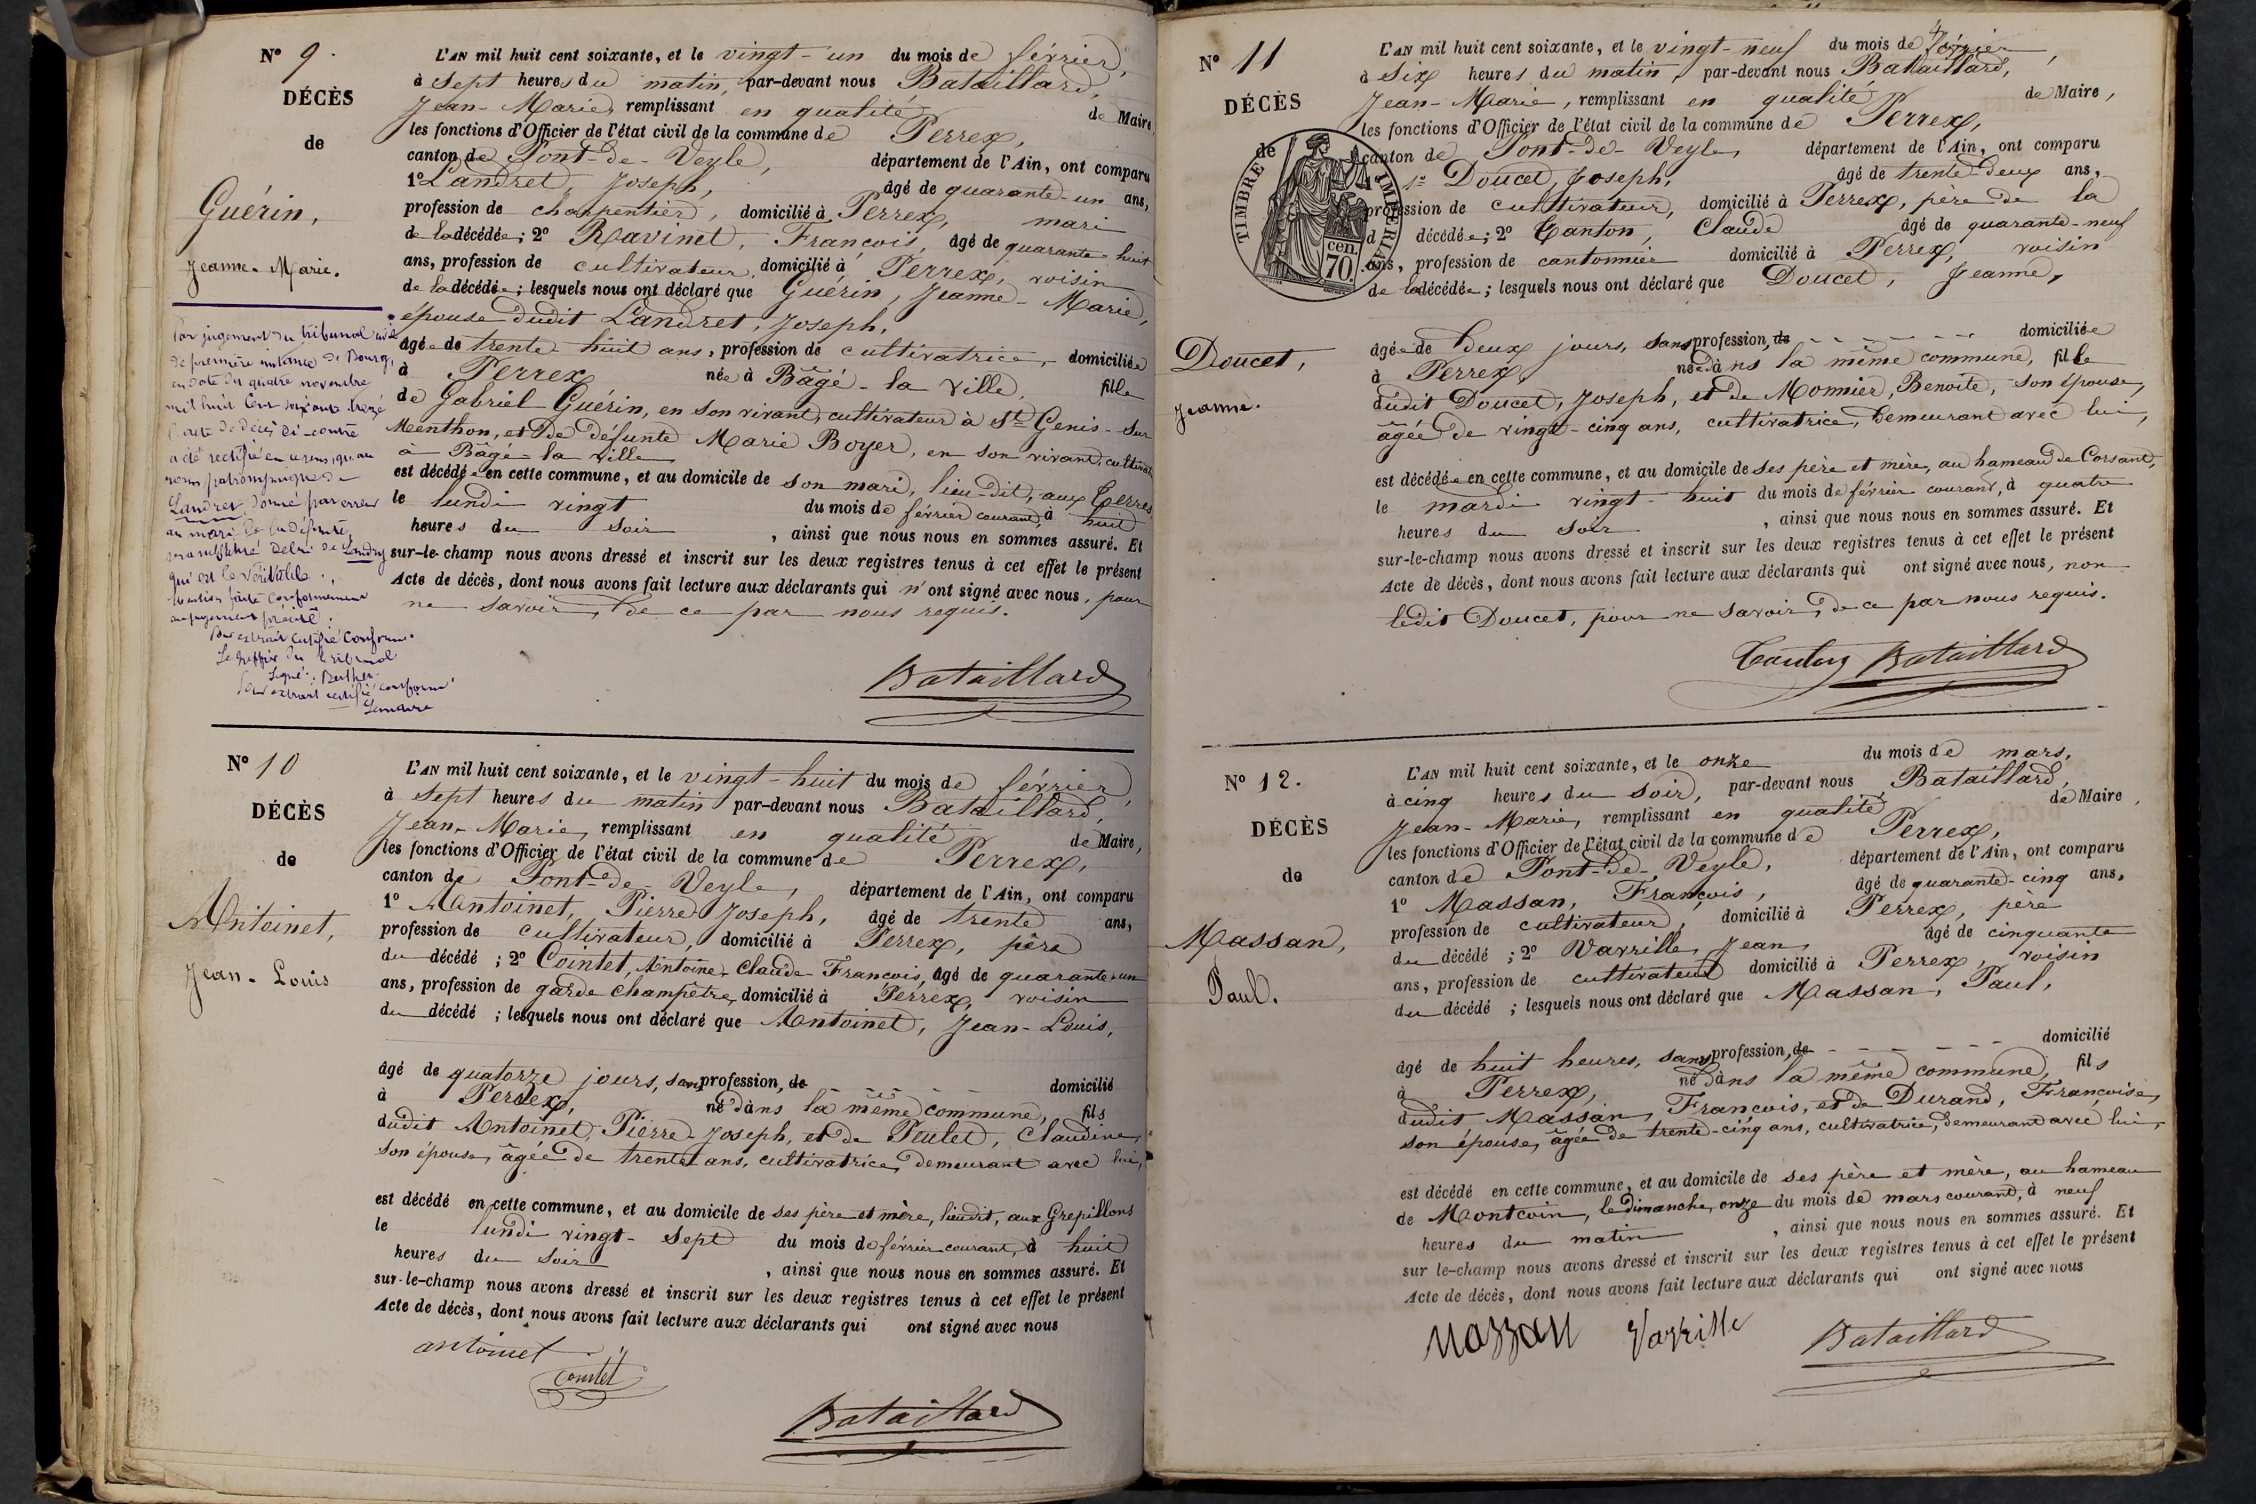 Nº 9.
DÉCÈS
de
Guérin,
Jeanne-Marie.
L'AN mil huit cent soixante, et le vingt-un du mois de février,
à sept heures du matin, par-devant nous Bataillard,
Jean-Marie, remplissant en qualité de Maire
les fonctions d'Officier de l'état civil de la commune de Perrex,
canton de Pont-de-Veyle, département de l'Ain, ont comparu
1º Landret, Joseph, âgé de quarante-un ans,
profession de charpentier, domicilié à Perrex, mari
de la décédée; 2º Ravinet, François, âgé de quarante huit
ans, profession de cultivateur, domicilié à Perrex, voisin
de la décédée; lesquels nous ont déclaré que Guérin, Jeanne-Marie,
épouse dudit Landret, Joseph,
âgée de trente-huit ans, profession de cultivatrice, domiciliée
à Perrex née à Bâgé-la ville, fille
de Gabriel Guérin, en son vivant, cultivateur à St Genis-sur
Menthon, et de défunte Marie Boyer, en son vivant, cultivat
à Bâgé-la ville
est décédée en cette commune, et au domicile de son mari, lieu-dit, aux Terres
le lundi vingt du mois de février courant, à huit
heures du soir, ainsi que nous nous en sommes assuré. Et
sur-le-champ nous avons dressé et inscrit sur les deux registres tenus à cet effet le présent
Acte de décès, dont nous avons fait lecture aux déclarants qui n'ont signé avec nous, pour
ne savoir, de ce par nous requis.
Bataillard
Par jugement du tribunal civil
de première instance de Bourg,
en date du quatre novembre
mil huit cent soixante treize
l'acte de décès ci-contre
a été rectifié en ce sens, qu'au
nom patronymique de
Landret, donné par erreur
au mari de la défunte,
sera substitué celui de Landry
qui est le véritable.
Mention faite conformément
au jugement précité.
Pour extrait certifié conforme.
Le greffier du tribunal
Signé:
Pour extrait certifié conforme
Le maire
Nº 10
DÉCÈS
de
Antoinet,
Jean-Louis
L'AN mil huit cent soixante, et le vingt-huit du mois de février,
à sept heures du matin par-devant nous Bataillard,
Jean-Marie, remplissant en qualité de Maire,
les fonctions d'Officier de l'état civil de la commune de Perrex,
canton de Pont-de-Veyle, département de l'Ain, ont comparu
1º Antoinet, Pierre-Joseph, âgé de trente ans,
profession de cultivateur, domicilié à Perrex, père
du décédé; 2º Cointet, Antoine-Claude-François, âgé de quarante-un
ans, profession de garde champêtre, domicilié à Perrex, voisin
du décédé; lesquels nous ont déclaré que Antoinet, Jean-Louis,
âgé de quatorze jours, sans profession, de domicilié
à Perrex, né dans la même commune, fils
dudit Antoinet, Pierre-Joseph, et de Peulet, Claudine,
son épouse, âgée de trente ans, cultivatrice, demeurant avec lui,
est décédé en cette commune, et au domicile de ses père et mère, lieudit, aux Grepillons
le lundi vingt-sept du mois de février courant, à huit
heures du soir, ainsi que nous nous en sommes assuré. Et
sur-le-champ nous avons dressé et inscrit sur les deux registres tenus à cet effet le présent
Acte de décès, dont nous avons fait lecture aux déclarants qui ont signé avec nous
antoinet
Cointet
Bataillard
Nº 11
DÉCÈS
de
TIMBRE IMPERIAL
70 cen.
Doucet,
Jeanne.
L'AN mil huit cent soixante, et le vingt-neuf du mois de février,
à six heures du matin, par-devant nous Bataillard,
Jean-Marie, remplissant en qualité de Maire,
les fonctions d'Officier de l'état civil de la commune de Perrex,
canton de Pont-de-Veyle, département de l'Ain, ont comparu
1º Doucet, Joseph, âgé de trente-deux ans,
profession de cultivateur, domicilié à Perrex, père de la
d décédée; 2º Tanton, Claude âgé de quarante-neuf
ans, profession de cantonnier domicilié à Perrex, voisin
de la décédée; lesquels nous ont déclaré que Doucet, Jeanne,
âgée de deux jours, sans profession, de domiciliée
à Perrex, née dans la même commune, fille
dudit Doucet, Joseph, et de Monnier, Benoîte, son épouse,
âgée de vingt-cinq ans, cultivatrice, demeurant avec lui,
est décédée en cette commune, et au domicile de ses père et mère, au hameau de Corsant,
le mardi vingt-huit du mois de février courant, à quatre
heures du soir, ainsi que nous nous en sommes assuré. Et
sur-le-champ nous avons dressé et inscrit sur les deux registres tenus à cet effet le présent
Acte de décès, dont nous avons fait lecture aux déclarants qui ont signé avec nous, non
ledit Doucet, pour ne savoir, de ce par nous requis.
Tanton Bataillard
Nº 12.
DÉCÈS
de
Massan,
Paul.
L'AN mil huit cent soixante, et le onze du mois de mars,
à cinq heures du soir, par-devant nous Bataillard,
Jean-Marie, remplissant en qualité de Maire,
les fonctions d'Officier de l'état civil de la commune de Perrex,
canton de Pont-de-Veyle, département de l'Ain, ont comparu
1º Massan, François, âgé de quarante-cinq ans,
profession de cultivateur, domicilié à Perrex, père
du décédé; 2º Varrille, Jean, âgé de cinquante
ans, profession de cultivateur domicilié à Perrex, voisin
du décédé; lesquels nous ont déclaré que Massan, Paul,
âgé de huit heures, sans profession, de domicilié
à Perrex, né dans la même commune, fils
dudit Massan, François, et de Durand, Françoise,
son épouse, âgée de trente-cinq ans, cultivatrice, demeurant avec lui,
est décédé en cette commune, et au domicile de ses père et mère, au hameau
de Montcoin, le dimanche, onze du mois de mars courant, à neuf
heures du matin, ainsi que nous nous en sommes assuré. Et
sur le-champ nous avons dressé et inscrit sur les deux registres tenus à cet effet le présent
Acte de décès, dont nous avons fait lecture aux déclarants qui ont signé avec nous
Massan Varrille Bataillard